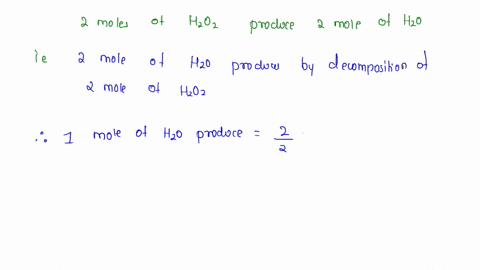 2 moles of H2O2 produce 2 mole of H2O
ie 2 mole of H2O produce by decomposition of
2 mole of H2O2
∴ 1 mole of H2O produce = 2/2